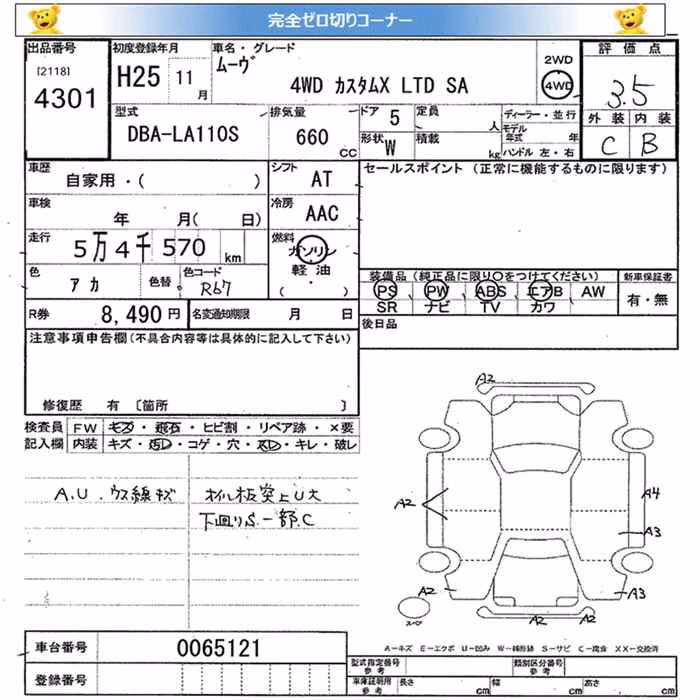 完全ゼロ切りコーナー
出品番号 [2118] 4301
初度登録年月 H25 11月
車名・グレード ムーヴ 4WD カスタムX LTD SA
2WD
4WD
評価点 3.5
外装 内装
C B
型式 DBA-LA110S
排気量 660 CC
ドア 5
形状 W
定員 人
積載 kg
ディーラー・並行
モデル年式 年
ハンドル 左・右
車歴 自家用・( )
シフト AT
セールスポイント (正常に機能するものに限ります)
車検 年 月( 日)
冷房 AAC
走行 5万4千570km
燃料 ガソリン
軽油
・
( )
色 アカ
色替
色コード R67
装備品(純正品に限り○をつけてください)
PS PW ABS エアB AW
SR ナビ TV カワ
新車保証書
有・無
R券 8,490円
名変通知期限 月 日
後日品
注意事項申告欄(不具合内容等は具体的に記入して下さい)
修復歴 有 〔箇所 〕
検査員記入欄
FW キズ・飛石・ヒビ割・リペア跡・×要
内装 キズ・汚レ・コゲ・穴・スレ・キレ・破レ
A.U.ウス線キズ
オイル板突上U大
下廻りS一部C
A2
A2
A4
A3
A2
A3
A2
A2
スペア
車台番号 0065121
登録番号
A-キズ E-エクボ U-凹み W-補修跡 S-サビ C-腐食 XX-交換済
型式指定番号 参考
類別区分番号 参考
車庫証明用 参考 長さ cm 幅 cm 高さ cm